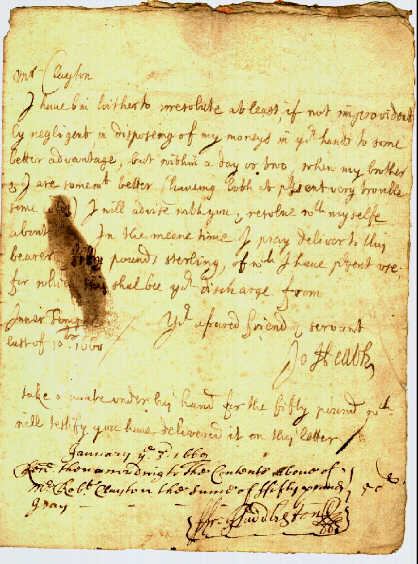 Mr Clayton
I have bin hitherto irresolute at least, if not improvident
ly negligent in disposeing of my moneys in yr hands to some
better advantage, but within a day or two, when my brother
& I are somewt better (haveing both at psent very trouble
some) I will advise with you, & resolve with my selfe
about In the meane time I pray deliver to this
bearer fifty pounds sterling, of wch I have psent use.
for which this shal bee yr discharge from
Inner Temple Yr assured friend & servant
last of 10br 1660 Jo Heath
take a note under his hand for the fifty pound wch
will testify you have delivered it on this letter
January ye 3d 1660
Recd then according to the Contents above of
Mr Robt Clayton the sume of ffifty pounds
I say